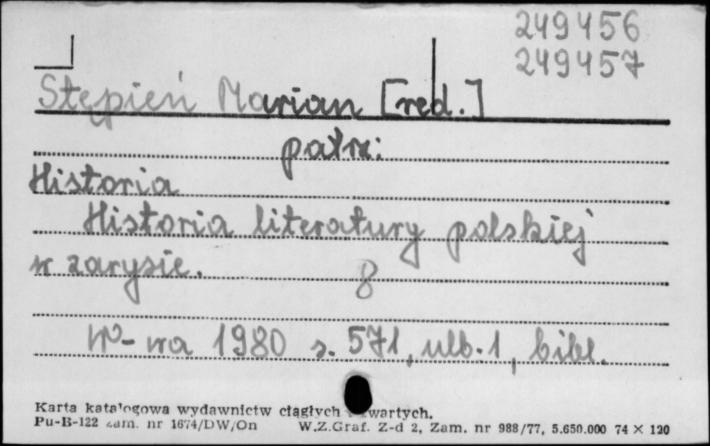 249456
249457
Stępień Marian [red.]
patrz:
Historia
Historia literatury polskiej
w zarysie. 8
W-wa 1980 s. 571, ulb. 1, bibl.
Karta katalogowa wydawnictw ciągłych i zwartych.
Pu-B-122 zam. nr 1674/DW/On W.Z.Graf. Z-d 2, Zam. nr 988/77, 5.650.000 74 × 120